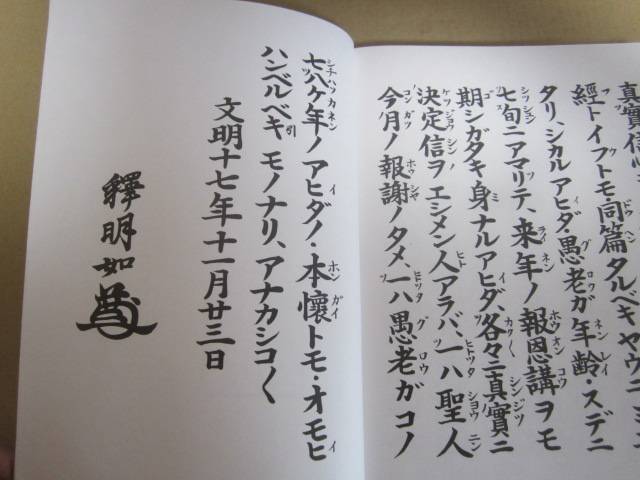 真實信
經トイフトモ・同篇タルベキヤウニ
タリ、シカルアヒダ・愚老ガ年齢・スデニ
七旬ニアマリテ、来年ノ報恩講ヲモ
期シガタキ身ナルアヒダ、各々ニ真實ニ
決定信ヲエシメン人アラバ、一ハ聖人
今月ノ報謝ノタメ、一ハ愚老ガコノ
七八ヶ年ノアヒダノ・本懷トモ・オモヒ
ハンベルベキモノナリ、アナカシコ〱
文明十七年十一月廿三日
釋明如